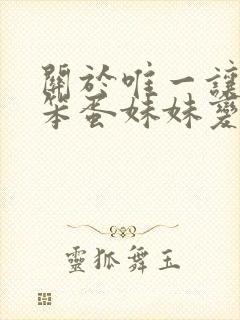 關於唯一讓
笨蛋妹妹愛
靈狐舞玉